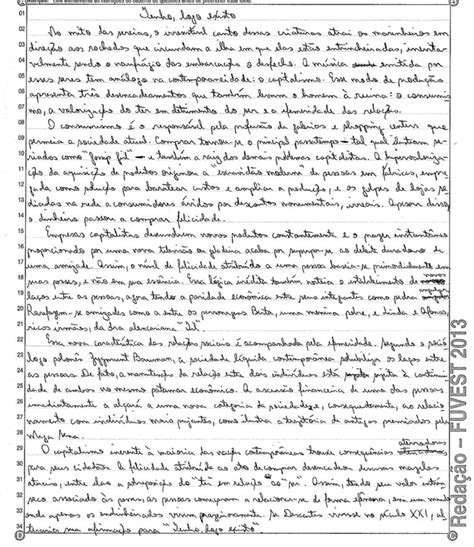 Tenho, logo existo
No mito das sereias, o irresistível canto dessas criaturas atrai os marinheiros em
direção aos rochedos que circundam a ilha em que elas estão entrincheiradas,
sendo o naufrágio das embarcações o desfecho. A música emitida por
esses seres tem análogo na contemporaneidade: o capitalismo. Esse modo de produção
apresenta três desencadeamentos que também levam o homem à ruína: o consumis
mo, a valorização do ter em detrimento do ser e a efemeridade das relações.
O consumismo é o responsável pela profusão de fábricas e shopping centers que
permeia a sociedade atual. Comprar tornou-se o principal passatempo - tal qual
como "Gossip Girl" - e também a raiz dos demais problemas capitalistas. A hipervaloriza-
ção da aquisição de produtos originou a escravidão moderna de pessoas em fábricas, empre
gada como solução para baratear custos e ampliar a produção, e os golpes de lojas se
diadas na rede a consumidores ávidos por descontos monumentais, irreais. Apesar disso,
o dinheiro passou a comprar felicidade.
Empresas capitalistas desenvolvem novos produtos constantemente e o prazer instantâneo
proporcionado por uma nova televisão ou geladeira acaba por sobrepor-se ao deleite duradouro de
uma amizade. Assim, o nível de felicidade atribuído a uma pessoa baseia-se primordialmente em
suas posses, e não em sua essência. Essa lógica inédita também norteia o estabelecimento de novos
laços entre as pessoas, agora tendo a paridade econômica entre seus integrantes como pedra
amizades como a entre os personagens Bento, uma menina pobre, e Linda e Afonso,
ricos irmãos, da obra alencariana "Til".
Essa nova característica das relações sociais é acompanhada pela efemeridade. Segundo o soció
logo polonês Zygmunt Bauman, a sociedade líquida contemporânea solubiliza os laços entre
as pessoas. De fato, a manutenção da relação entre dois indivíduos está sujeita à continui
dade de ambos no mesmo patamar econômico. A ascensão financeira de uma das pessoas
imediatamente a alçará a uma nova categoria na sociedade e, consequentemente, ao relacio
namento com indivíduos mais pujantes, como ilustra a trajetória de antigos premiados pela
Mega Sena.
O capitalismo inerente à maioria das nações contemporâneas trouxe consequências aterradoras
para seus cidadãos. A felicidade atribuída ao ato de comprar desencadeou inúmeras mazelas
atuais, entre elas a sobreposição do "ter" em relação ao "ser". Assim, tendo seu valor intrín
seco associado às posses, as pessoas começaram a relacionar-se de forma efêmera, em um mundo
onde apenas os endinheirados vivem prazerosamente. Se Descartes vivesse no século XXI, al
teraria sua afirmação para "Tenho, logo existo".
Redação – FUVEST 2013